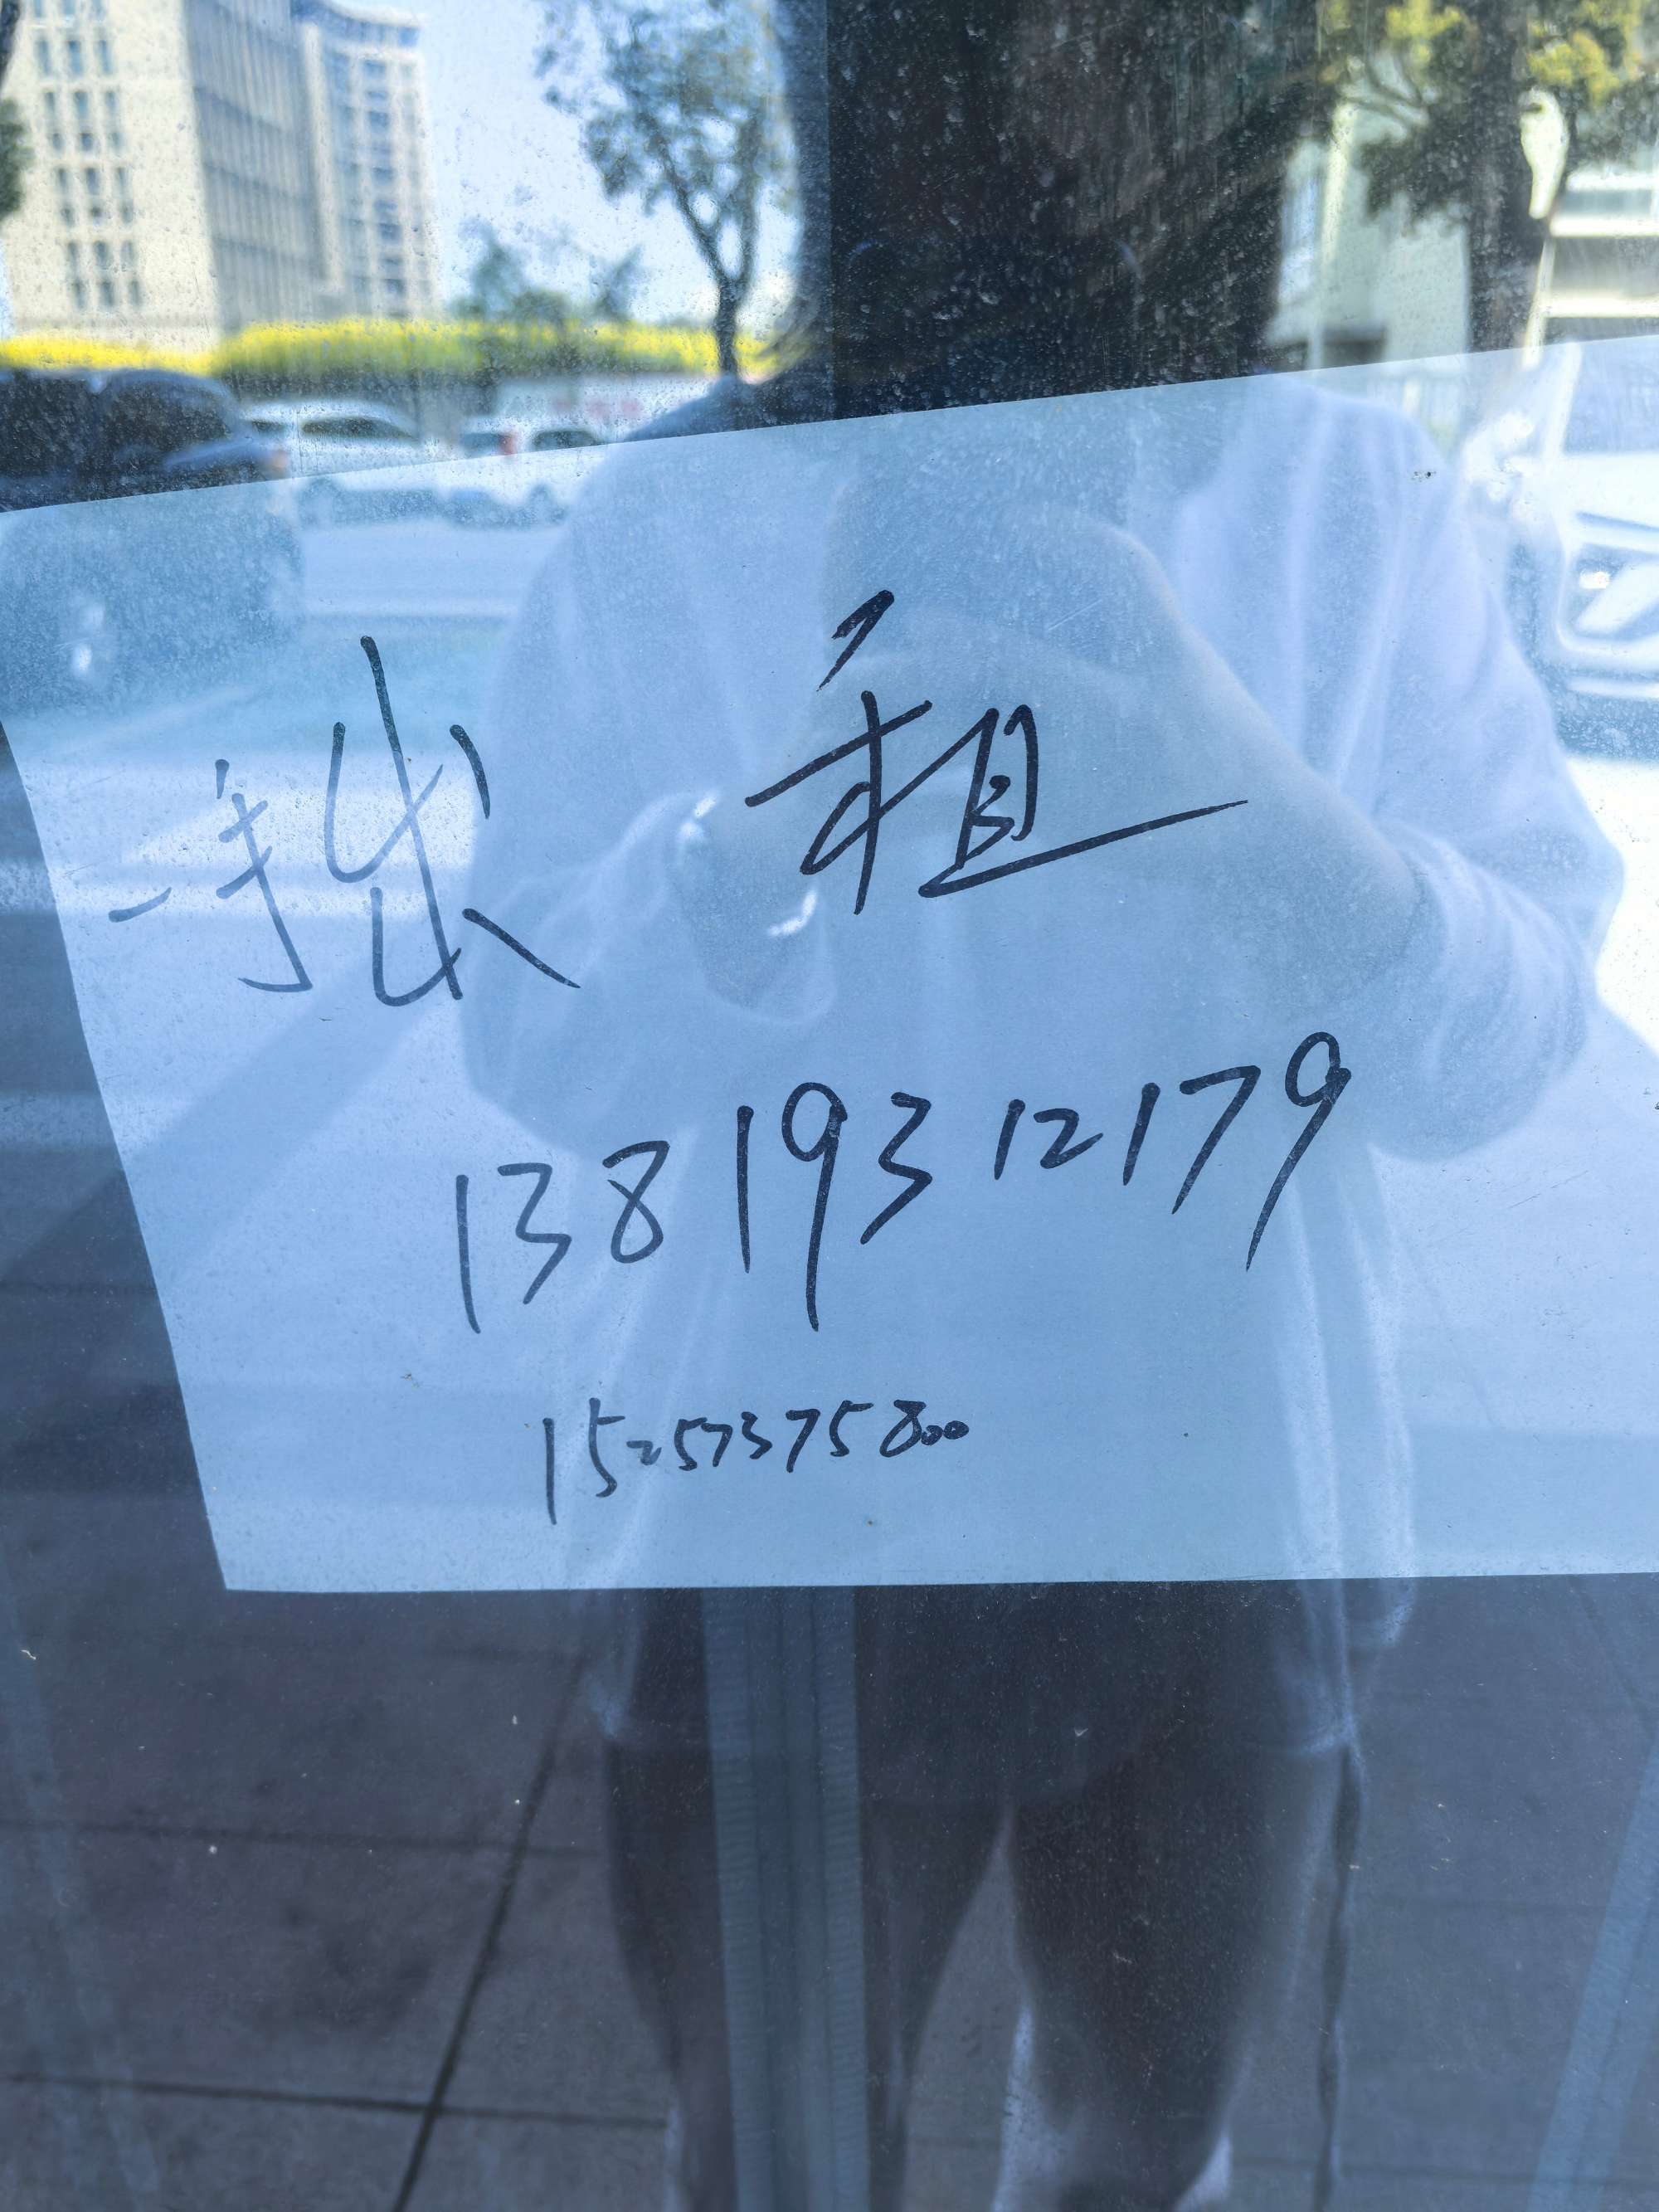 一手出租
13819312179
15257375800